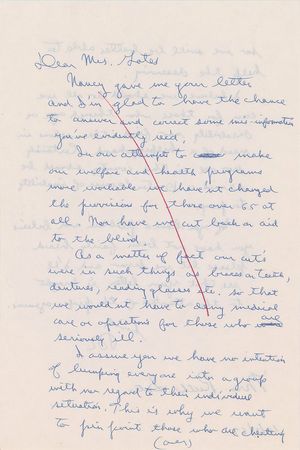 Dear Mrs. Gates
Nancy gave me your letter
and I'm glad to have the chance
to answer and correct some mis-information
you've evidently read.
In our attempts to make
our welfare and health programs
more workable we have'nt changed
the provisions for those over 65 at
all. Nor have we cut back on aid
to the blind.
As a matter of fact our cuts
were in such things as braces on teeth,
dentures, reading glasses etc. so that
we would'nt have to deny medical
care or operations for those who are
seriously ill.
I assure you we have no intention
of lumping everyone into a group
with no regard to their individual
situation. This is why we want
to pin point those who are cheating
(over)